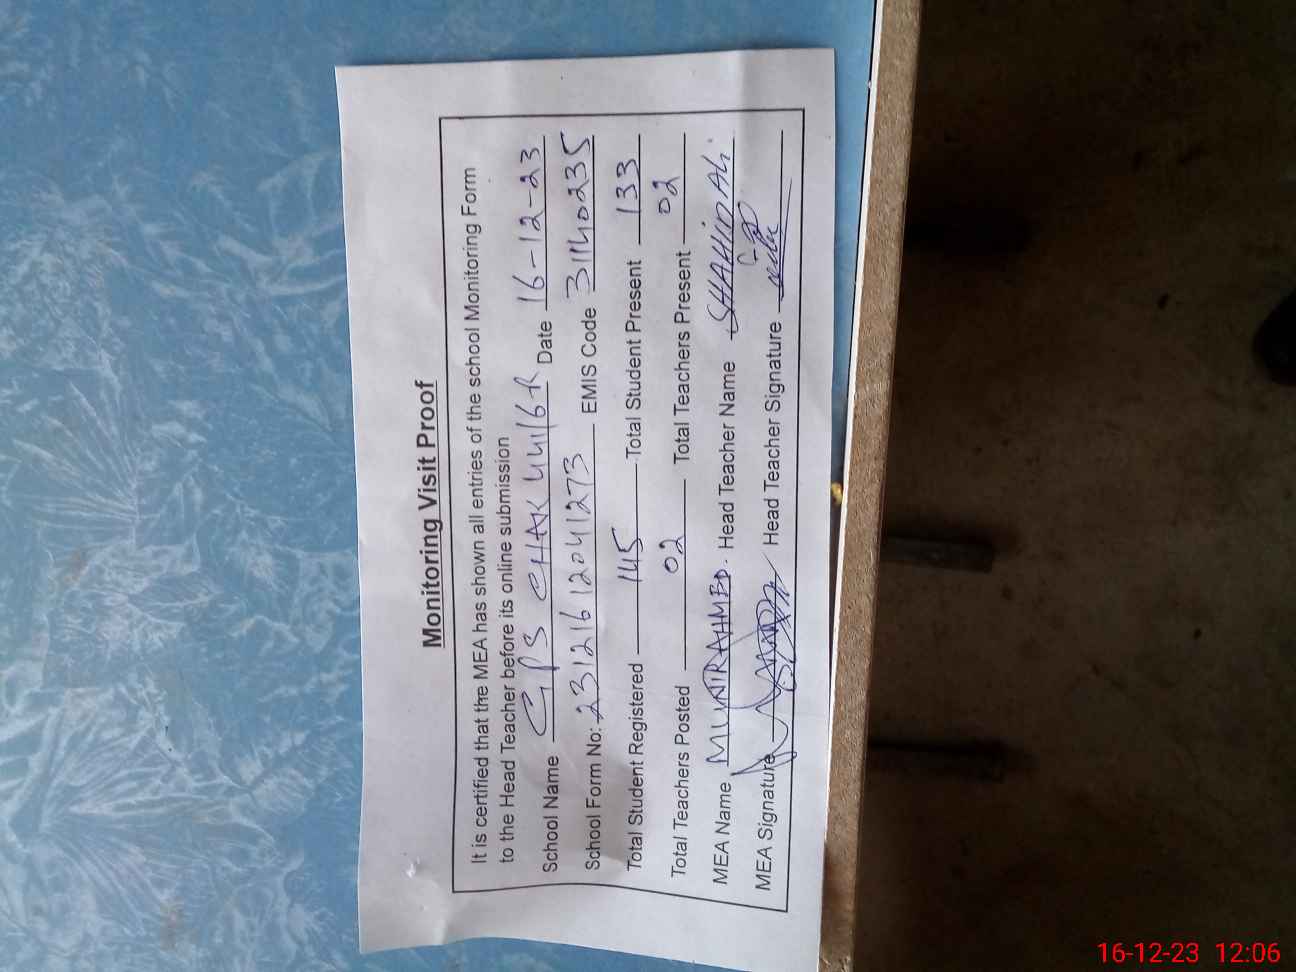 Monitoring Visit Proof
It is certified that the MEA has shown all entries of the school Monitoring Form
to the Head Teacher before its online submission
School Name GPS CHAK 44/16R Date 16-12-23
School Form No: 231216 12041273 EMIS Code 31140235
Total Student Registered 145 Total Student Present 133
Total Teachers Posted 02 Total Teachers Present 02
MEA Name MUNIR AHMED. Head Teacher Name SHAHID Ali
MEA Signature Head Teacher Signature
16-12-23 12:06